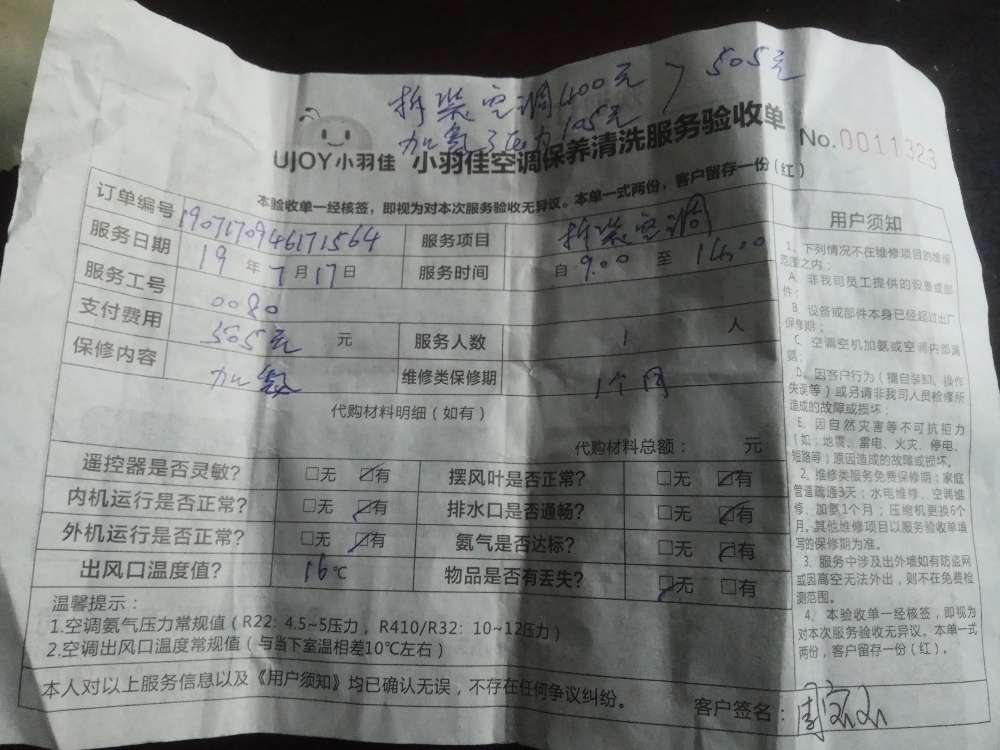 拆装空调400元 > 505元
加氨3压力105元
UJOY小羽佳 小羽佳空调保养清洗服务验收单
No.0011323
本验收单一经核签，即视为对本次服务验收无异议。本单一式两份，客户留存一份(红)
订单编号 1907170946171564 服务项目 拆装空调
服务日期 19年7月17日 服务时间 自9.00至14.00
服务工号 0080
支付费用 505元 元 服务人数 1 人
保修内容 加氨 维修类保修期 1个月
代购材料明细（如有）
代购材料总额： 元
遥控器是否灵敏? □无 ☑有 摆风叶是否正常? □无 ☑有
内机运行是否正常? □无 ☑有 排水口是否通畅? □无 ☑有
外机运行是否正常? □无 ☑有 氨气是否达标? □无 ☑有
出风口温度值? 16℃ 物品是否有丢失? ☑无 □有
温馨提示：
1.空调氨气压力常规值（R22: 4.5~5压力，R410/R32: 10~12压力）
2.空调出风口温度常规值（与当下室温相差10℃左右）
本人对以上服务信息以及《用户须知》均已确认无误，不存在任何争议纠纷。
客户签名：
用户须知
1、下列情况不在维修项目的维保
范围之内：
A、非我司员工提供的设备或部
件；
B、设备或部件本身已经超过出厂
保修期；
C、空调空机加氨或空调内部漏
氨；
D、因客户行为（擅自装卸、操作
失误等）或另请非我司人员检修所
造成的故障或损坏；
E、因自然灾害等不可抗拒力
（如：地震、雷电、火灾、停电、
短路等）原因造成的故障或损坏。
2、维修类服务免费保修期：家庭
管道疏通3天；水电维修、空调维
修、加氨1个月；压缩机更换6个
月。其他维修项目以服务验收单填
写的保修期为准。
3、服务中涉及出外墙如有防盗网
或因高空无法外出，则不在免费检
测范围。
4、本验收单一经核签，即视为
对本次服务验收无异议。本单一式
两份，客户留存一份（红）。